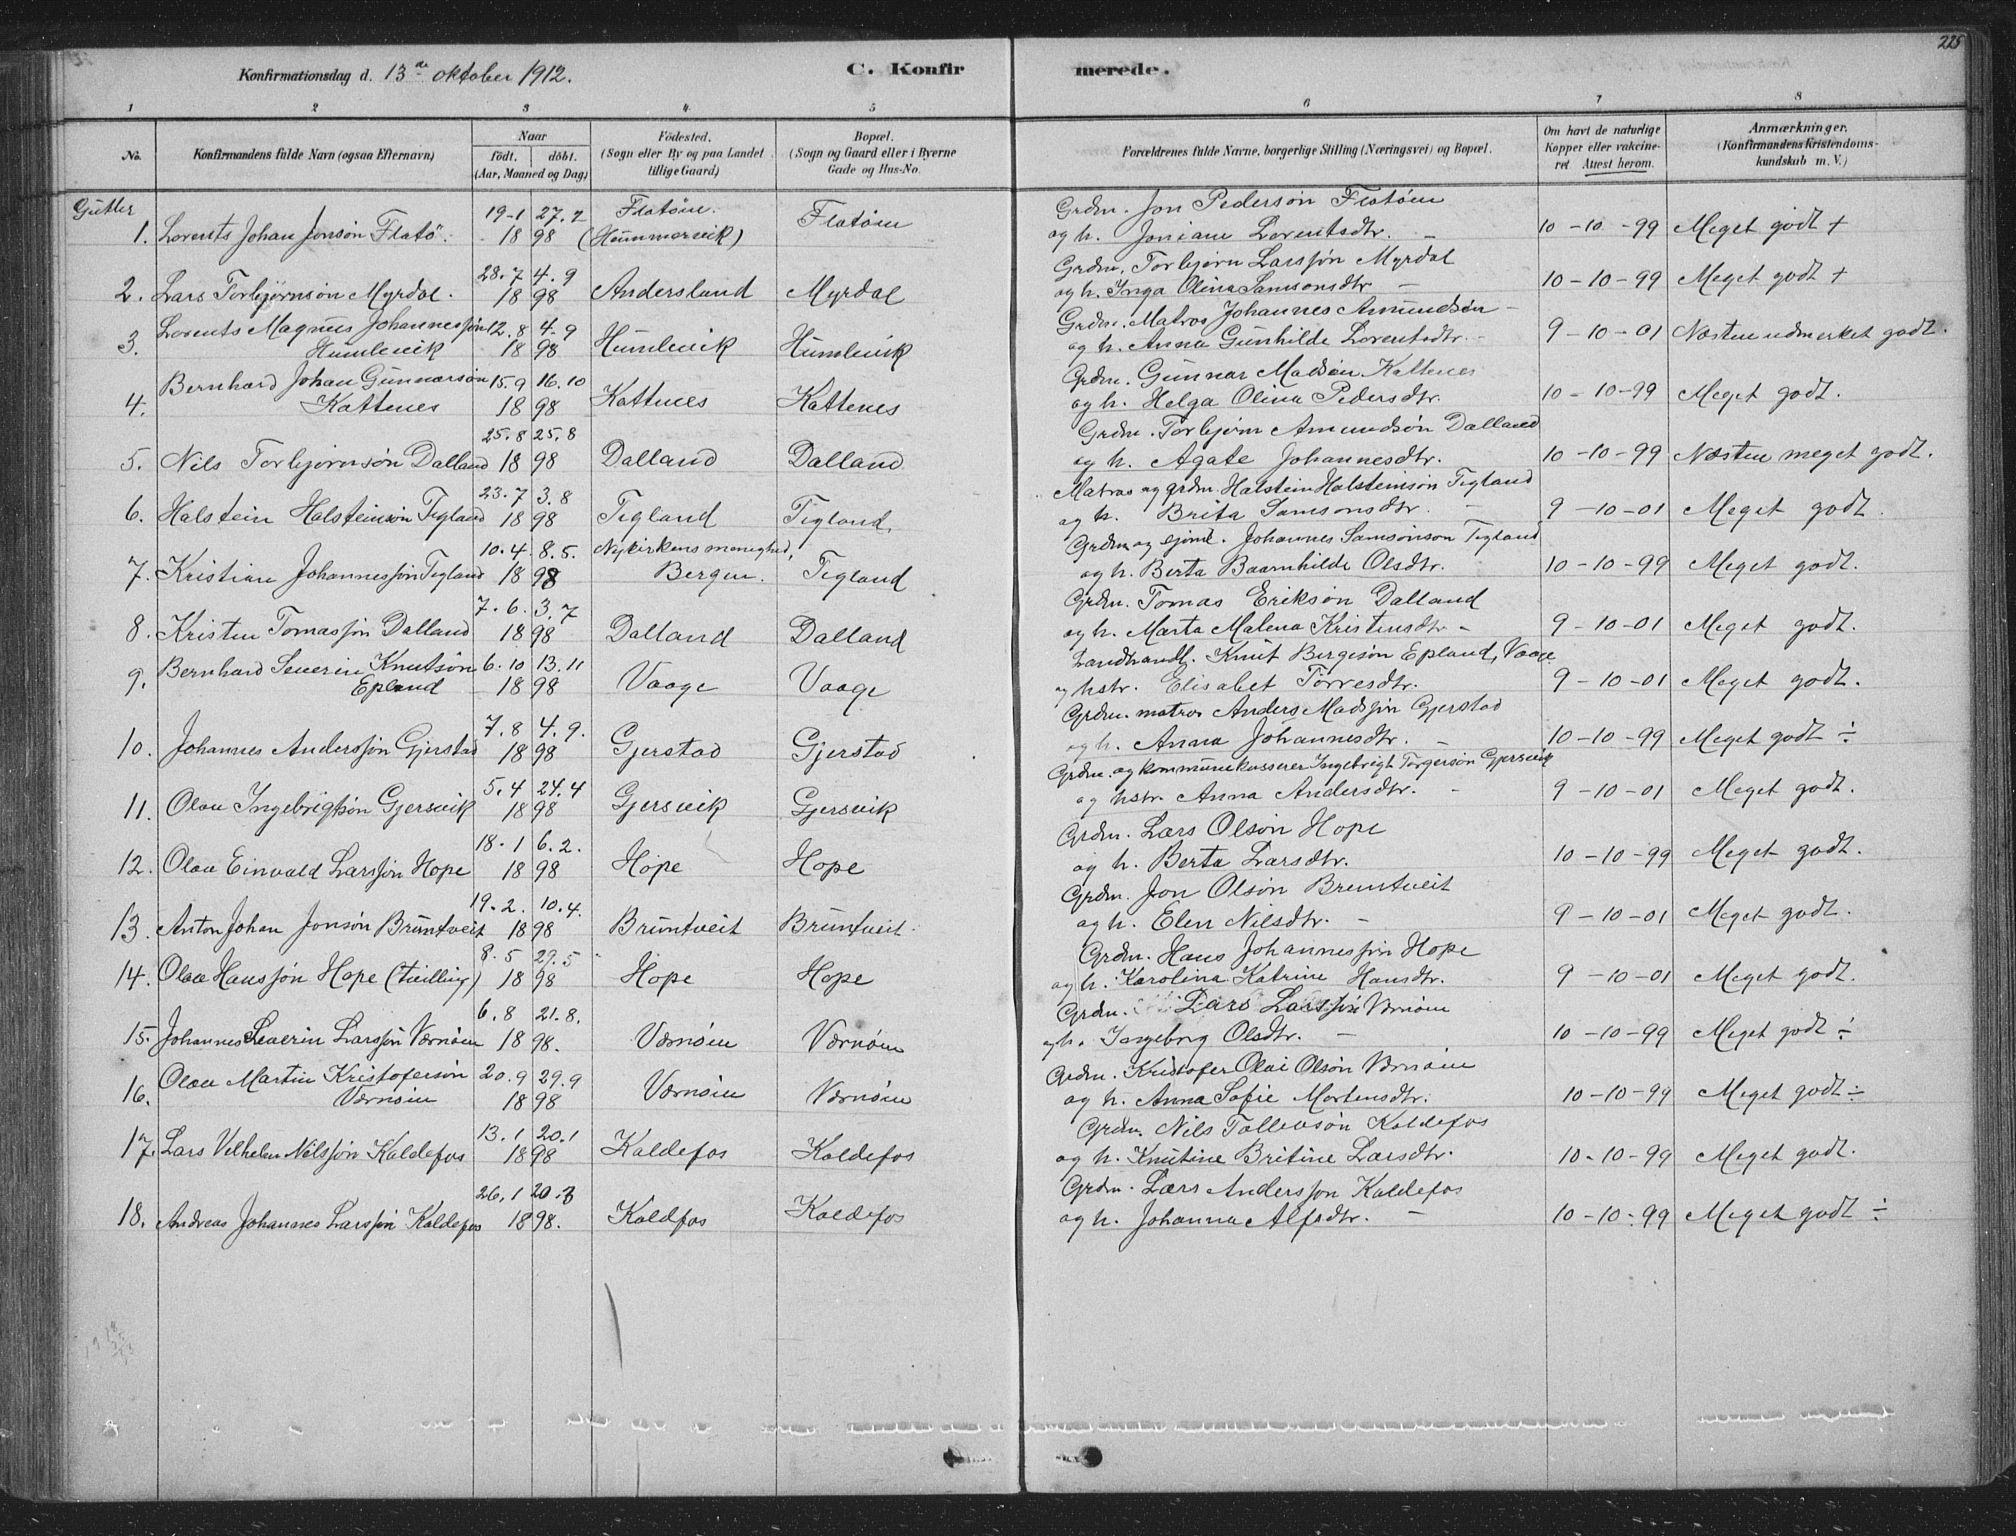 225
Konfirmationsdag d. 13de oktober 1912.
C. Konfirmerede.
1 2 3 4 5 6 7 8
No.
Konfirmandens fulde Navn (ogsaa Efternavn)
Naar
födt. döbt.
(Aar, Maaned og Dag)
Födested.
(Sogn eller By og paa Landet
tillige Gaard)
Bopæl.
(Sogn og Gaard eller i Byerne
Gade og Hus-No.
Forældrenes fulde Navne, borgerlige Stilling (Næringsvei) og Bopæl.
Om havt de naturlige
Kopper eller vakcine-
ret Attest herom.
Anmærkninger.
(Konfirmandens Kristendoms-
kundskab m. V.)
Gutter
19-1 27.2 Flatöen. Grdm. Jon Pedersön Flatöen
1. Lorents Johan Jonsön Flatö. 18 98 (Hummervik) Flatöen og h. Joniane Lorentsdtr. – 10-10-99 Meget godt +
28.7 4.9 Grdm. Torbjörn Larssön Myrdal
2. Lars Torbjörnsön Myrdal. 18 98 Andersland Myrdal og h. Inga Olina Samsonsdtr – 10-10-99 Meget godt +
3. Lorents Magnus Johannessön 12.8 4.9 Grdm. Matros Johannes Amundsön –
Humlevik 18 98 Humlevik Humlevik og h. Anna Gunhilde Lorentsdtr. 9-10-01 Næsten udmerket godt.
4. Bernhard Johan Gunnarsön 15.9 16.10 Grdm. Gunnar Madsön Kattenes
Kattenes 18 98 Kattenes Kattenes og h. Helga Olina Pedersdtr. 10-10-99 Meget godt.
25.8 25.8 Grdm. Torbjörn Amundsön Dalland
5. Nils Torbjörnsön Dalland 18 98 Dalland Dalland og h. Agate Johannesdtr. 10-10-99 Næsten meget godt.
23.7 3.8 Matros og grdm. Halstein Halsteinsön Tegland
6. Halstein Halsteinsön Tegland 18 98 Tegland Tegland. og h. Brita Samsonsdtr. – 9-10-01 Meget godt.
10.4. 8.5. Nykirkens menighed, Grdm og sjömd. Johannes Samsonson Tegland
7. Kristian Johannessön Tegland 18 98 Bergen. Tegland og h. Berta Baarnhilde Olsdtr. 10-10-99 Meget godt.
7.6. 3.7 Grdm. Tomas Eriksön Dalland
8. Kristen Tomassön Dalland 18 98 Dalland Dalland og h. Marta Malena Kristensdtr – 9-10-01 Meget godt.
9. Bernhard Severin Knutsön 6.10 13.11 Landhandl. Knut Bergesön Epland, Vaage
Epland 18 98 Vaage Vaage og hstr. Elisabet Torresdtr. 9-10-01 Meget godt.
7.8 4.9. Grdm. matros Anders Madssön Gjerstad
10. Johannes Anderssön Gjerstad 18 98 Gjerstad Gjerstad og h. Anna Johannesdtr. – 10-10-99 Meget godt ÷
5.4 24.4 Grdm. og kommunekasserer Ingebrigt Torgersön Gjersvik
11. Olav Ingebrigtsön Gjersvik 18 98 Gjersvik Gjersvik og hstr. Anna Andersdtr. – 9-10-01 Meget godt.
18.1 6.2. Grdm. Lars Olsön Hope
12. Olav Einvald Larssön Hope 18 98 Hope Hope og h. Berta Larsdtr. 10-10-99 Meget godt.
19.2. 10.4. Grdm. Jon Olsön Bruntveit
13. Anton Johan Jonsön Bruntveit 18 98 Bruntveit Bruntveit. og h. Elen Nilsdtr. – 9-10-01 Meget godt.
8.5 29.5 Grdm. Hans Johannessön Hope
14. Olav Hanssön Hope (tvilling) 18 98 Hope Hope og h. Karolina Katrine Hansdtr. 9-10-01 Meget godt.
6.8 21.8. Grdm. Lars Larssön Værnöen
15. Johannes Severin Larssön Værnöen 18 98. Værnöen Værnöen og h. Ingeborg Olsdtr. – 10-10-99 Meget godt ÷
16. Olav Martin Kristofersön 20.9 29.9 Grdm. Kristofer Olai Olsön Værnöen
Værnöen 18 98 Værnöen Værnöen og h. Anna Sofie Mortensdtr. 10-10-99 Meget godt ÷
13.1 20.1 Grdm. Nils Tollevsön Kaldefos
17. Lars Vilhelm Nilssön Kaldefos 18 98 Kaldefos Kaldefos og h. Knutine Britine Larsdtr. 10-10-99 Meget godt.
26.1 20.3 Grdm. Lars Anderssön Kaldefos
18. Andreas Johannes Larssön Kaldefos 18 98. Kaldfos Kaldefos og h. Johanna Alfsdtr. – 10-10-99 Meget godt ÷